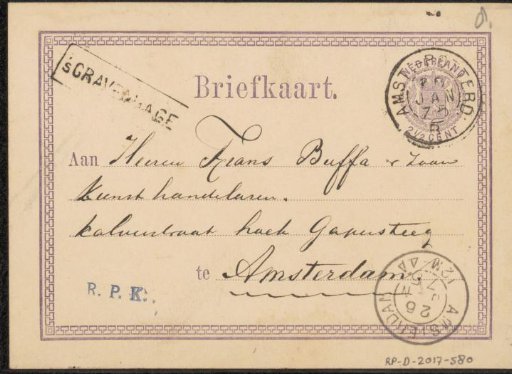 'SGRAVENHAGE
Briefkaart.
AMST. ROTTERD
JAN
75
5
2½ CENT
Aan Heeren Frans Buffa & Zoon
Kunsthandelaren.
Kalverstraat hoek Gapersteeg
te Amsterdam
R. P. K.
AMSTERDAM
26
12M-4A
RP-D-2017-580